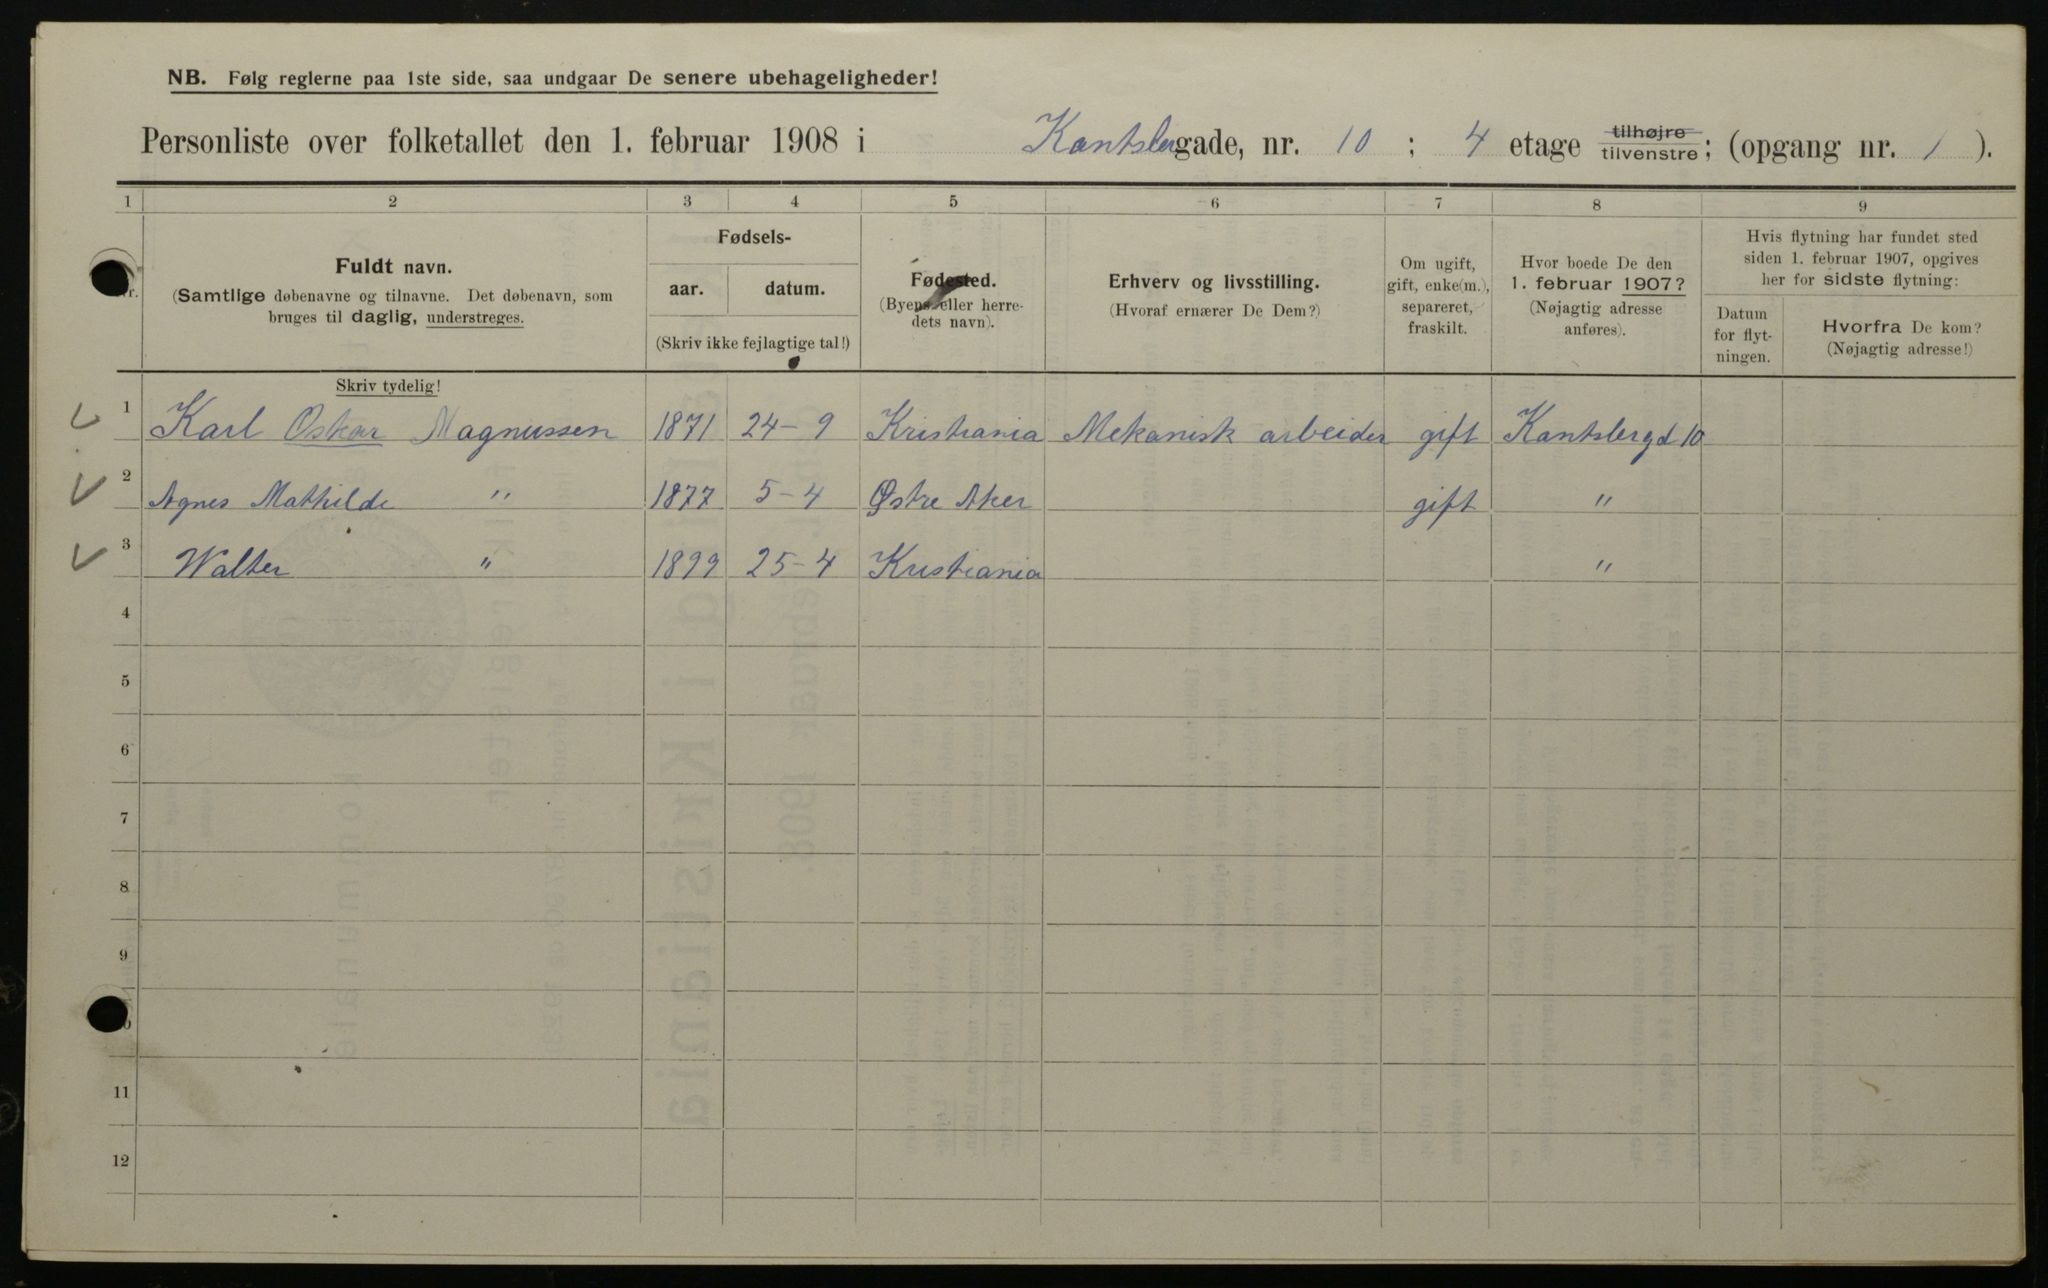 NB. Følg reglerne paa 1ste side, saa undgaar De senere ubehageligheder!
Personliste over folketallet den 1. februar 1908 i Kantslergade, nr. 10 ; 4 etage tilhøjre tilvenstre ; (opgang nr. 1 ).
1 2 3 4 5 6 7 8 9
Nr.
Fuldt navn.
(Samtlige døbenavne og tilnavne. Det døbenavn, som
bruges til daglig, understreges.
Fødsels-
aar. datum.
(Skriv ikke fejlagtige tal!)
Fødested.
(Byens eller herre-
dets navn).
Erhverv og livsstilling.
(Hvoraf ernærer De Dem?)
Om ugift,
gift, enke(m.),
separeret,
fraskilt.
Hvor boede De den
1. februar 1907?
(Nøjagtig adresse
anføres).
Hvis flytning har fundet sted
siden 1. februar 1907, opgives
her for sidste flytning:
Datum
for flyt-
ningen.
Hvorfra De kom?
(Nøjagtig adresse!)
Skriv tydelig!
1 Karl Oskar Magnussen 1871 24-9 Kristiania Mekanisk arbeider gift Kantslergd 10
2 Agnes Mathilde " 1877 5-4 Østre Aker gift "
3 Walter " 1899 25-4 Kristiania "
4
5
6
7
8
9
10
11
12